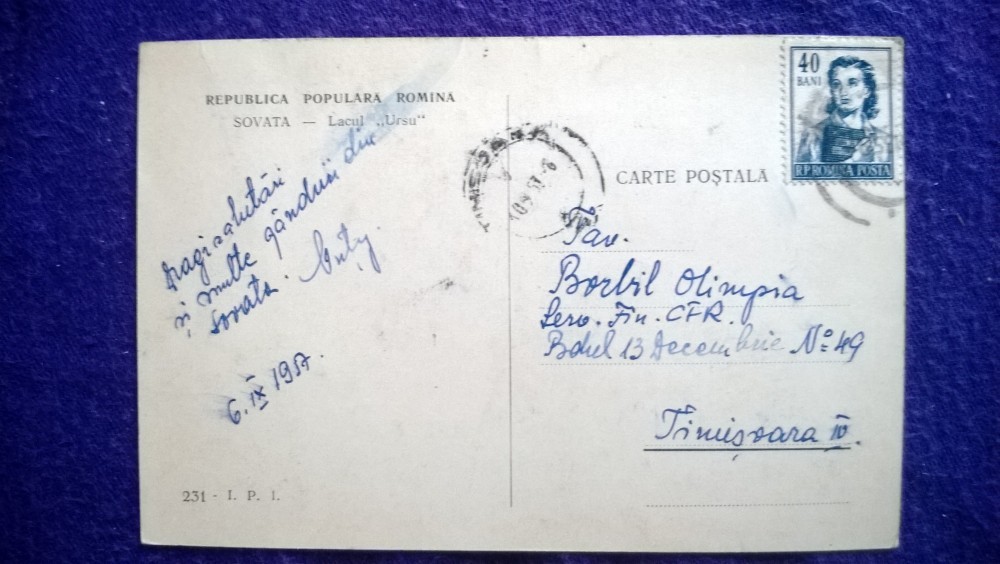 REPUBLICA POPULARĂ ROMÎNĂ
SOVATA — Lacul „Ursu"
Dragi salutări
și multe gânduri din
Sovata.
6.IX 1957.
231 - I. P. I.
40
BANI
R.P.ROMINA POSTA
CARTE POȘTALĂ
Tov.
Borbil Olimpia
Serv. Fin. C.F.R.
Bdul 13 Decembrie No 49
Timișoara IV.